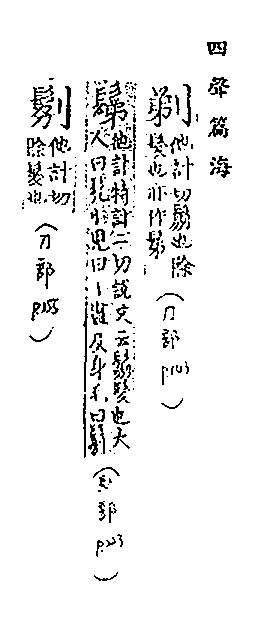 四聲篇海
剃他計切鬀也除
髮也亦作鬀
(刀部
p.103)
鬀他計特計二切說文云鬀髮也大
人曰髡小兒曰鬀盡及身毛曰鬄
(髟部
p.223)
他計切
除髮也
(刀部
p.105)